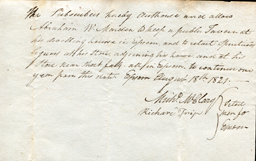 The Subscribers hereby Authorize and allow
Abraham W. Marden to keep a public Tavern at
his dwelling house in Epsom and to retail Spirituous
liquors at his Store adjoining his house and at his
Store near all in Epsom, to continue one
year from this date Epsom August 18th 1820.
Mich. McClary
Richard Tripp
for
Epsom